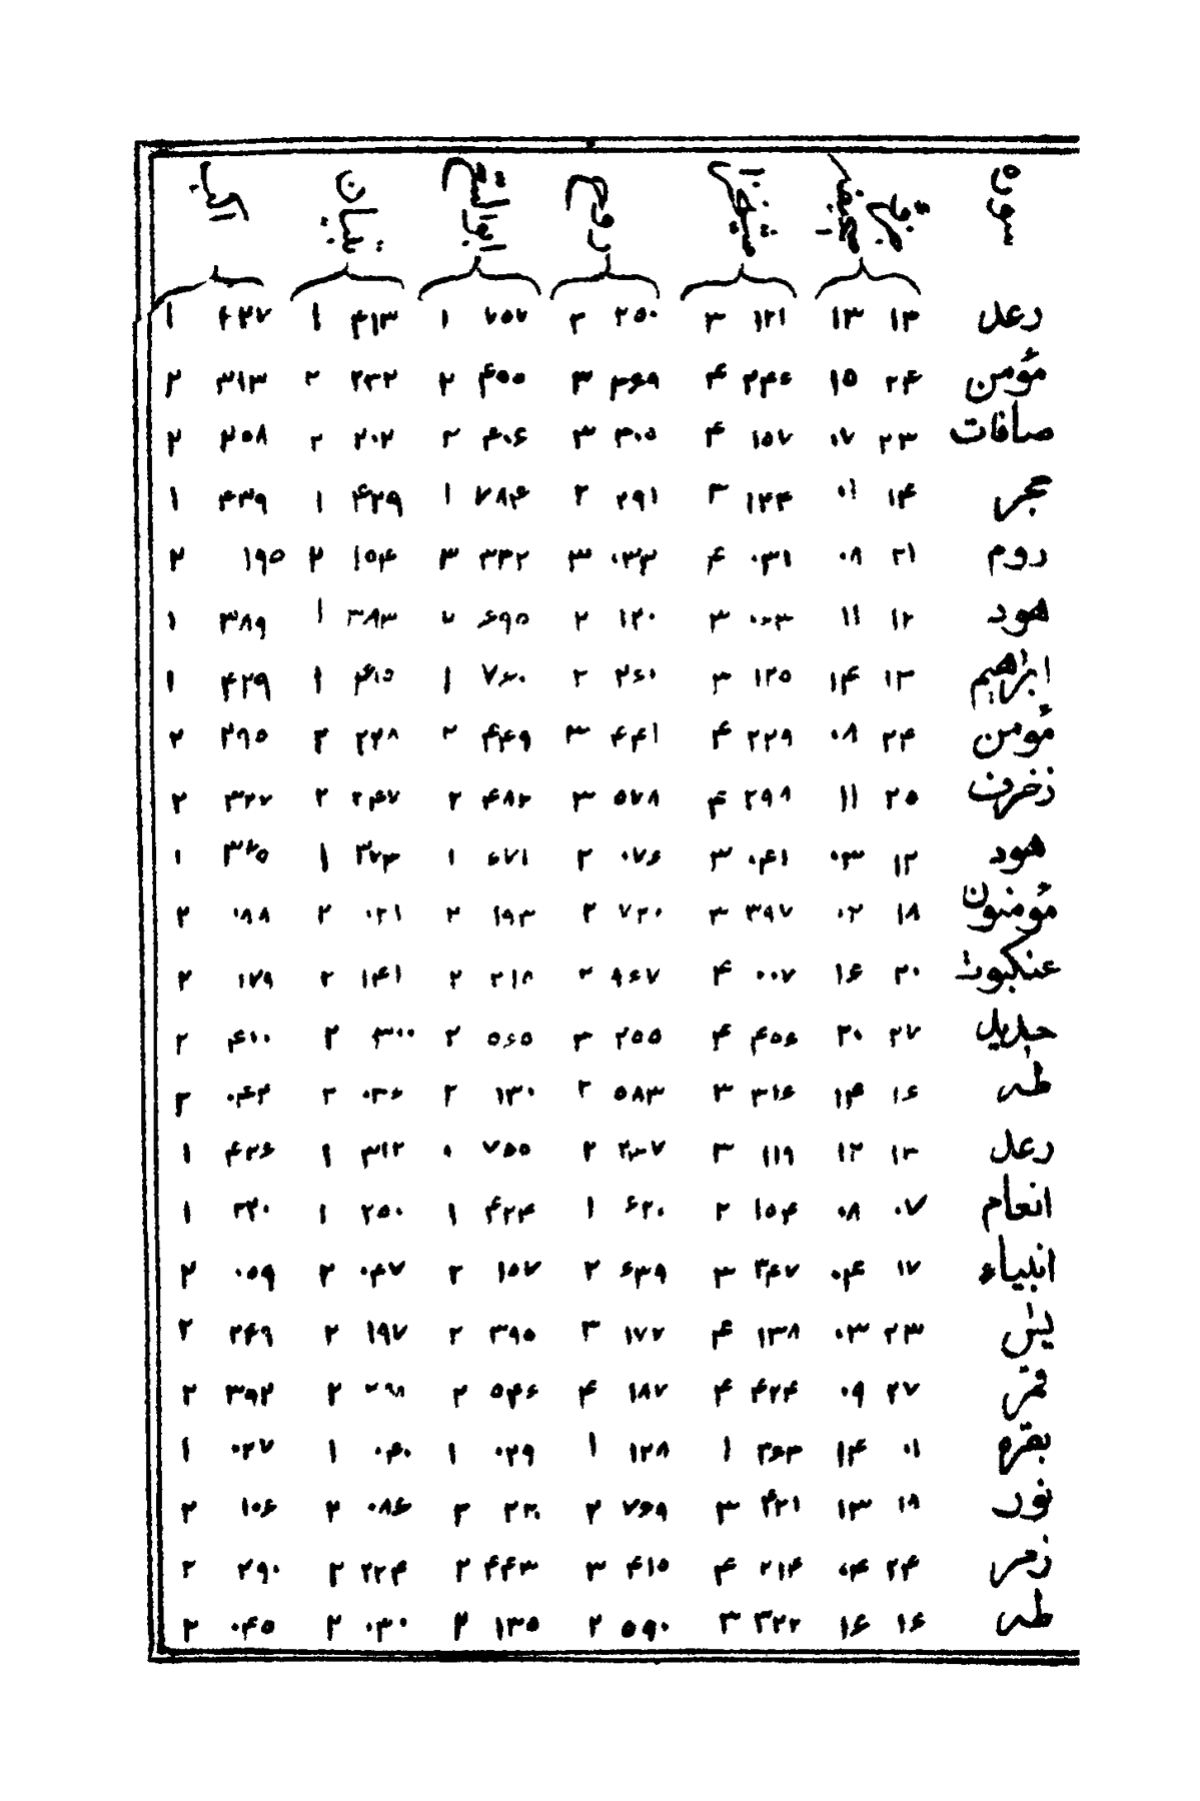 سورة
رعل ۱۳ ۱۳ ۱۲۱ ۳ ۲۵۰ ۲ ۷۵۷ ۱ ۴۱۳ ۱ ۴۲۷ ۱
مؤمن ۲۴ ۱۵ ۲۴۶ ۴ ۳۶۹ ۳ ۴۵۵ ۲ ۲۳۲ ۲ ۳۱۳ ۲
صافات ۲۳ ۰۷ ۱۵۷ ۴ ۳۰۵ ۳ ۴۰۶ ۲ ۲۰۲ ۲ ۲۵۸ ۲
حجر ۱۴ ۰۱ ۱۴۴ ۳ ۲۹۱ ۲ ۷۸۴ ۱ ۴۲۹ ۱ ۴۳۹ ۱
روم ۲۱ ۰۸ ۰۳۱ ۴ ۰۳۳ ۳ ۳۳۲ ۳ ۱۵۴ ۲ ۱۹۵ ۲
هود ۱۲ ۱۱ ۰۶۳ ۳ ۱۲۰ ۲ ۶۹۵ ۲ ۳۸۳ ۱ ۳۸۹ ۱
ابراهيم ۱۳ ۱۴ ۱۲۵ ۳ ۲۶۰ ۲ ۷۶۰ ۱ ۴۱۵ ۱ ۴۲۹ ۱
مؤمن ۲۴ ۰۸ ۲۲۹ ۴ ۴۴۱ ۳ ۴۴۹ ۲ ۲۲۸ ۲ ۲۹۵ ۲
زخرف ۲۵ ۱۱ ۲۹۸ ۴ ۵۷۸ ۳ ۴۸۲ ۲ ۲۴۷ ۲ ۳۲۷ ۲
هود ۱۲ ۰۳ ۰۴۱ ۳ ۰۷۶ ۲ ۶۷۱ ۱ ۳۷۳ ۱ ۳۲۵ ۱
مؤمنون ۱۸ ۰۲ ۳۹۷ ۳ ۷۲۰ ۲ ۱۹۳ ۲ ۰۲۱ ۲ ۰۸۸ ۲
عنكبوت ۲۰ ۱۶ ۰۰۷ ۴ ۹۶۷ ۲ ۲۱۸ ۲ ۱۴۱ ۲ ۱۷۹ ۲
حديد ۲۷ ۲۰ ۴۵۶ ۴ ۲۵۵ ۳ ۵۶۵ ۲ ۳۰۰ ۲ ۴۱۰ ۲
طه ۱۶ ۱۴ ۳۱۶ ۳ ۵۸۳ ۲ ۱۳۰ ۲ ۰۳۶ ۲ ۰۴۴ ۲
رعل ۱۳ ۱۲ ۱۱۹ ۳ ۲۳۷ ۲ ۷۵۵ ۱ ۳۱۲ ۱ ۴۲۶ ۱
انعام ۰۷ ۰۸ ۱۵۴ ۲ ۶۲۰ ۱ ۴۲۴ ۱ ۲۵۰ ۱ ۲۲۰ ۱
انبياء ۱۷ ۰۴ ۳۴۷ ۳ ۶۳۹ ۲ ۱۵۷ ۲ ۰۴۷ ۲ ۰۵۹ ۲
يس ۲۳ ۰۳ ۱۳۸ ۴ ۱۷۲ ۳ ۳۹۵ ۲ ۱۹۷ ۲ ۲۴۹ ۲
قمر ۲۷ ۰۹ ۴۲۴ ۴ ۱۸۷ ۴ ۵۴۶ ۲ ۲۹۸ ۲ ۳۹۲ ۲
بقره ۰۱ ۱۴ ۳۶۳ ۱ ۱۲۸ ۱ ۰۲۹ ۱ ۰۴۰ ۱ ۰۲۷ ۱
نور ۱۸ ۱۳ ۴۲۱ ۳ ۷۶۹ ۲ ۲۲۰ ۲ ۰۸۶ ۲ ۱۰۶ ۲
زمر ۲۴ ۰۴ ۲۱۴ ۴ ۴۱۵ ۳ ۴۴۳ ۲ ۲۲۴ ۲ ۲۹۰ ۲
طه ۱۶ ۱۶ ۳۲۲ ۳ ۵۹۰ ۲ ۱۳۵ ۲ ۰۳۰ ۲ ۰۴۵ ۲